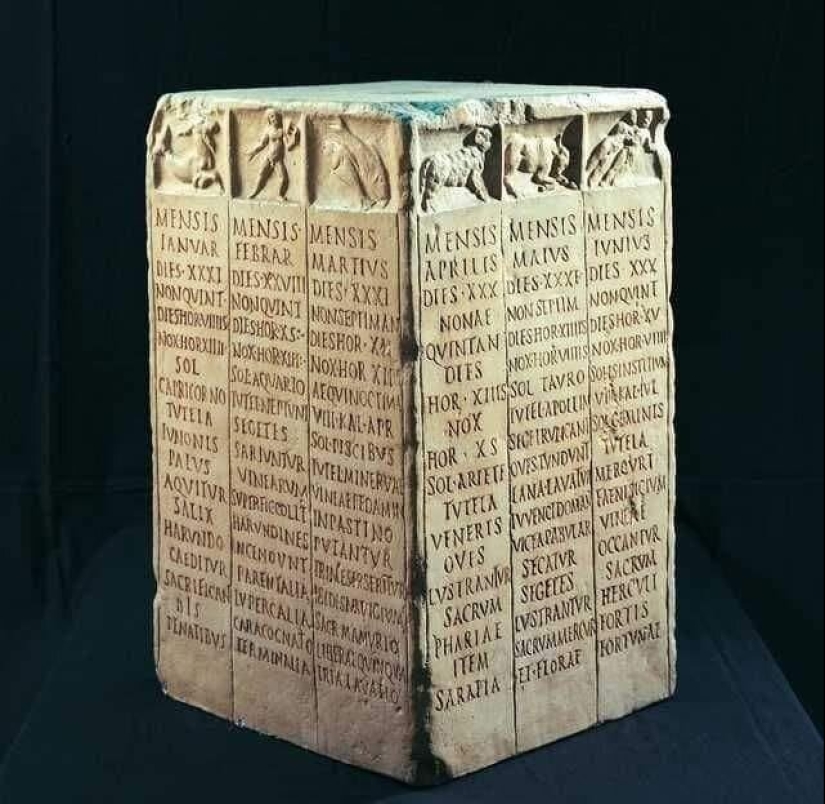 MENSIS
IANVAR
DIES·XXXI
NONQVINT
DIESHORVIIIIS
NOXHORXIIII
SOL
CAPRICORNO
TVTELA
IVNONIS
PALVS
AQVITVR
SALIX
HARVNDO
CAEDITVR
SACRIFICAN
DIS
PENATIBVS
MENSIS·
FEBRAR
DIES·XXVIII
NONQVINT
DIESHOR·XS·
NOXHORXIII
SOLAQVARIO
TVTELNEPTVNI
SEGETES
SARIVNTVR
VINEARVM
SVPERFICCOLIT
HARVNDINES
INCENDVNT
PARENTALIA
LVPERCALIA
CARACOGNATO
TERMINALIA
MENSIS
MARTIVS
DIES·XXXI
NONSEPTIMAN
DIESHOR·XII
NOXHOR XII
AEQVINOCTIVM
VIII·KAL·APR
SOL·PISCIBVS
TVTELMINERVAE
VINEAEPEDAMIN
INPASTINO
PVTANTVR
TRIMESTRSERITVR
ISIDISNAVIGIVM
SACR·MAMVRIO
LIBERALQVINQVA
TRIA·LAVATIO
MENSIS
APRILIS
DIES·XXX
NONAE
QVINTAN
DIES
HOR·XIIIS
NOX
HOR·XS
SOL·ARIETE
TVTELA
VENERIS
OVES
LVSTRANTVR
SACRVM
PHARIAE
ITEM
SARAPIA
MENSIS
MAIVS
DIES·XXXI
NONSEPTIM
DIESHORXIIIIS
NOXHORVIIIIS
SOL TAVRO
TVTELAPOLLIN
SEGETRVNCANT
OVESTVNDVNT
LANALAVATVR
IVVENCIDOMAN
VICEAPABVLAR
SECATVR
SEGETES
LVSTRANTVR
SACRVMMERCVR
ET·FLORAE
MENSIS
IVNIVS
DIES XXX
NONQVINT
DIESHOR·XV
NOXHOR·VIIII
SOLISINSTITIVM
VIII·KAL·IVL
SOLGEMINIS
TVTELA
MERCVRI
FAENISICIVM
VINEAE
OCCANTVR
SACRVM
HERCVLI
FORTIS
FORTVNAE